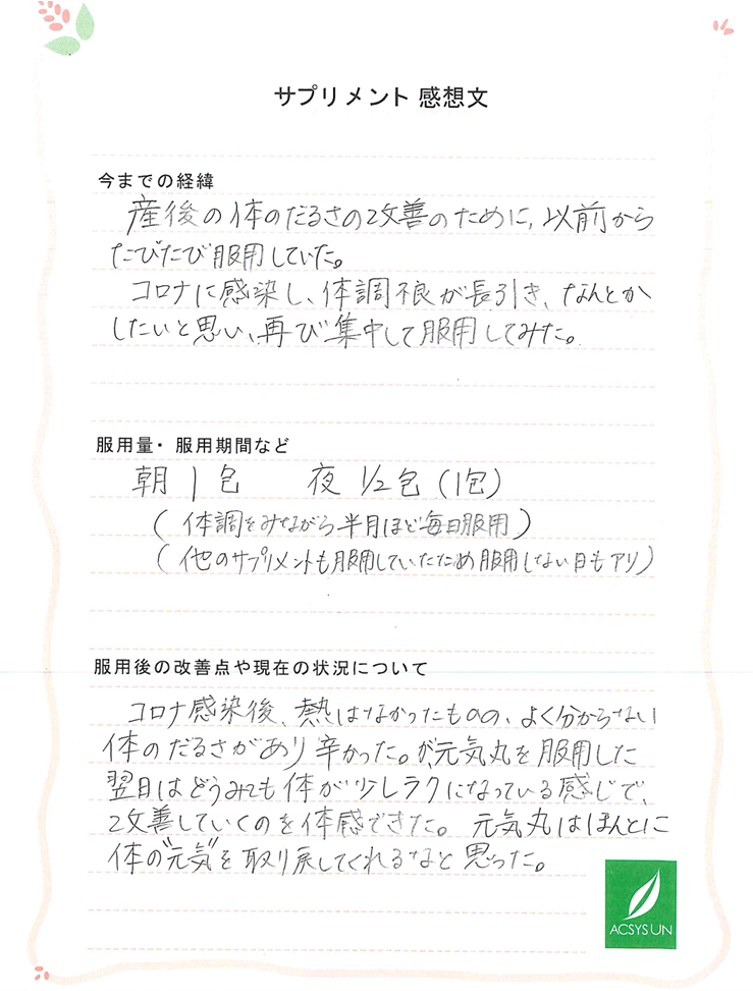 サプリメント 感想文
今までの経緯
産後の体のだるさの改善のために、以前から
たびたび服用していた。
コロナに感染し、体調不良が長引き、なんとか
したいと思い、再び集中して服用してみた。
服用量・服用期間など
朝 1包 夜 1/2包(1包)
(体調をみながら半月ほど毎日服用)
(他のサプリメントも服用していたため服用しない日もアリ)
服用後の改善点や現在の状況について
コロナ感染後、熱はなかったものの、よく分からない
体のだるさがあり辛かった。が、元気丸を服用した
翌日はどうみても体が少しラクになっている感じで、
改善していくのを体感できた。元気丸はほんとに
体の"元気"を取り戻してくれるなと思った。
ACSYSUN